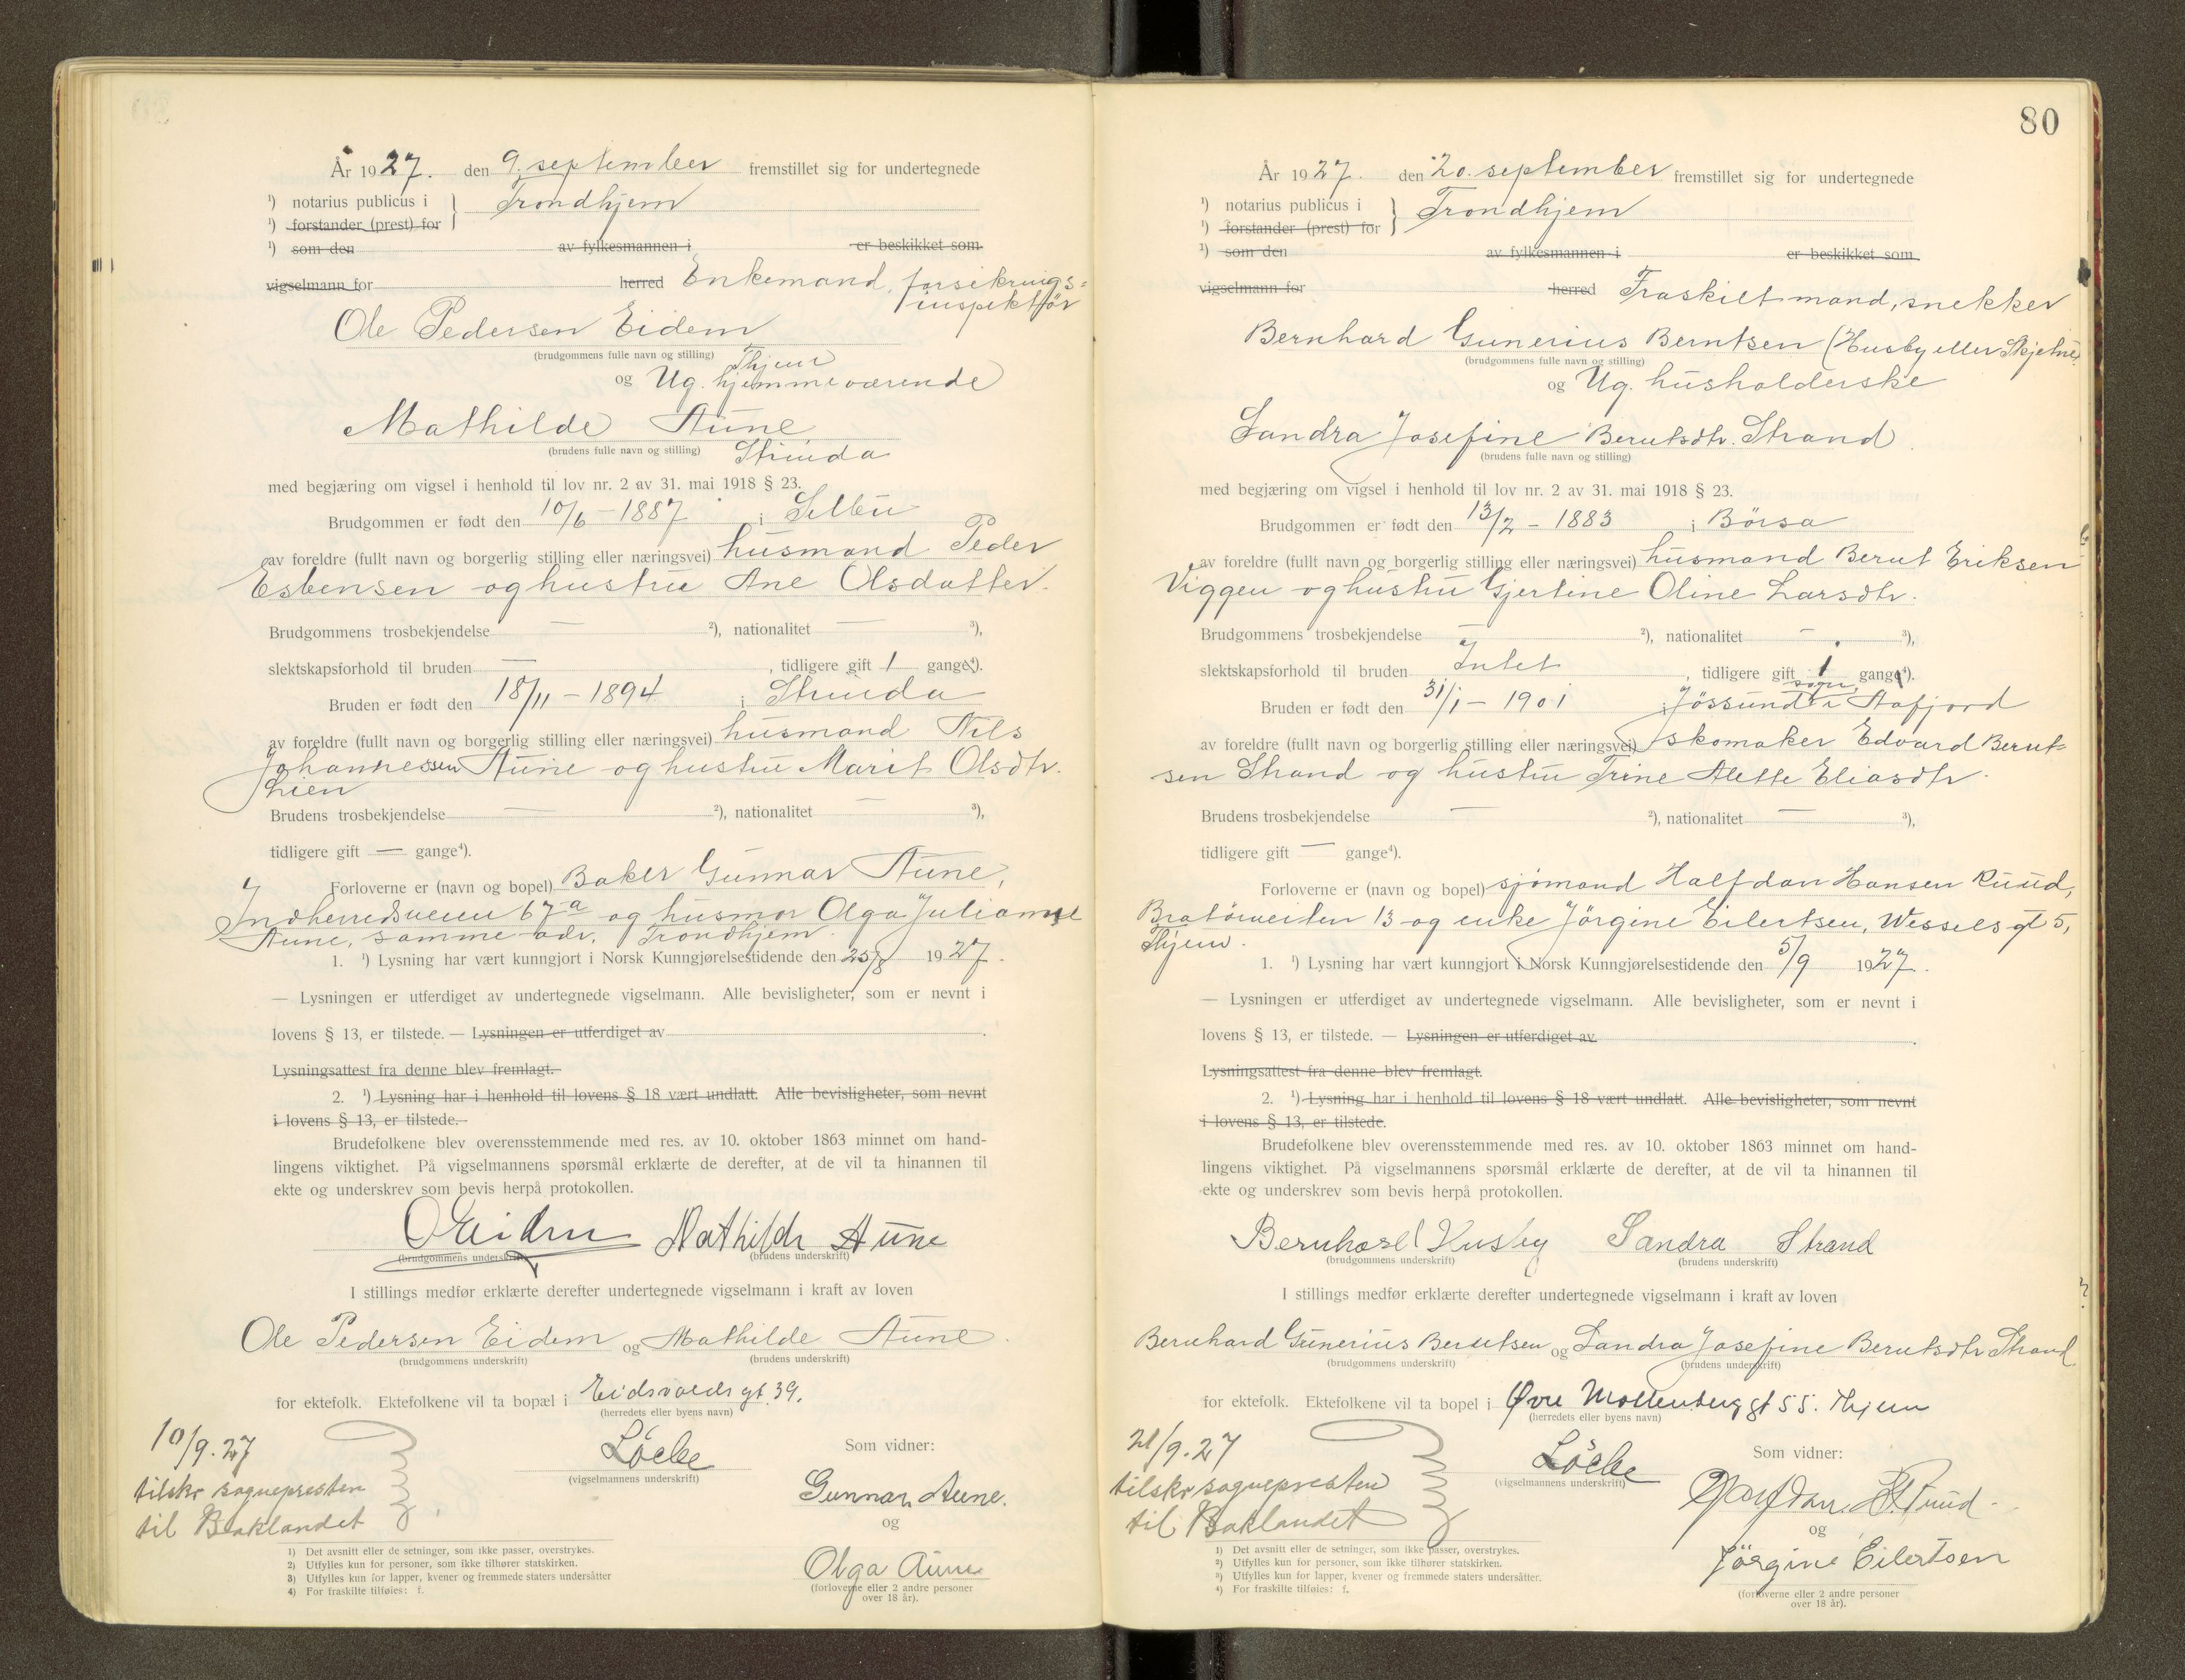 År 1927. den 9. september fremstillet sig for undertegnede
¹) notarius publicus i } Trondhjem
¹) forstander (prest) for
¹) som den av fylkesmannen i er beskikket som
vigselmann for herred Enkemand, forsikrings=
inspektør
Ole Pedersen Eidem
(brudgommens fulle navn og stilling) Thjem
og Ug. hjemmeværende
Mathilde Aune
(brudens fulle navn og stilling) Strinda
med begjæring om vigsel i henhold til lov nr. 2 av 31. mai 1918 § 23.
Brudgommen er født den 10/6 - 1887 i Selbu
av foreldre (fullt navn og borgerlig stilling eller næringsvei) husmand Peder
Esbensen og hustru Ane Olsdatter.
Brudgommens trosbekjendelse — ²), nationalitet — ³),
slektskapsforhold til bruden — , tidligere gift 1 gange⁴).
Bruden er født den 18/11 - 1894 i Strinda
av foreldre (fullt navn og borgerlig stilling eller næringsvei) husmand Nils
Johannessen Aune og hustru Marit Olsdtr.
Lien
Brudens trosbekjendelse — ²), nationalitet — ³),
tidligere gift — gange⁴).
Forloverne er (navn og bopel) Baker Gunnar Aune,
Indherredsveien 67a og husmor Olga Julianne
Aune, samme adr. Trondhjem.
1. ¹) Lysning har vært kunngjort i Norsk Kunngjørelsestidende den 25/8 1927.
— Lysningen er utferdiget av undertegnede vigselmann. Alle bevisligheter, som er nevnt i
lovens § 13, er tilstede. — Lysningen er utferdiget av .
Lysningsattest fra denne blev fremlagt.
2. ¹) Lysning har i henhold til lovens § 18 vært undlatt. Alle bevisligheter, som nevnt
i lovens § 13, er tilstede.
Brudefolkene blev overensstemmende med res. av 10. oktober 1863 minnet om hand-
lingens viktighet. På vigselmannens spørsmål erklærte de derefter, at de vil ta hinannen til
ekte og underskrev som bevis herpå protokollen.
OEidem Mathilde Aune
(brudgommens underskrift) (brudens underskrift)
I stillings medfør erklærte derefter undertegnede vigselmann i kraft av loven
Ole Pedersen Eidem og Mathilde Aune.
(brudgommens underskrift) (brudens underskrift)
for ektefolk. Ektefolkene vil ta bopæl i Eidsvolds gt. 39.
(herredets eller byens navn)
10/9.27 Löcke Som vidner:
(vigselmannens underskrift)
tilskr sognepresten Gunnar Aune.
til Baklandet og
Olga Aune
(forloverne eller 2 andre personer
over 18 år).
1) Det avsnitt eller de setninger, som ikke passer, overstrykes.
2) Utfylles kun for personer, som ikke tilhører statskirken.
3) Utfylles kun for lapper, kvener og fremmede staters undersåtter
4) For fraskilte tilføies: f.
80
År 1927. den 20. september fremstillet sig for undertegnede
¹) notarius publicus i } Trondhjem
¹) forstander (prest) for
¹) som den av fylkesmannen i er beskikket som
vigselmann for herred Fraskilt mand, snekker
Bernhard Gunerius Berntsen (Husby eller Skjelne)
(brudgommens fulle navn og stilling)
og Ug. husholderske
Sandra Josefine Berntsdtr. Strand
(brudens fulle navn og stilling)
med begjæring om vigsel i henhold til lov nr. 2 av 31. mai 1918 § 23.
Brudgommen er født den 13/2 - 1883 i Börsa
av foreldre (fullt navn og borgerlig stilling eller næringsvei) husmand Bernt Eriksen
Viggen og hustru Gjertine Oline Larsdtr.
Brudgommens trosbekjendelse — ²), nationalitet — ³),
slektskapsforhold til bruden Intet , tidligere gift 1 gange⁴).
Bruden er født den 31/1 - 1901 i Jössund sogn, Aafjord
av foreldre (fullt navn og borgerlig stilling eller næringsvei) skomaker Edvard Bernt=
sen Strand og hustru Trine Alette Eliasdtr.
Brudens trosbekjendelse — ²), nationalitet — ³),
tidligere gift — gange⁴).
Forloverne er (navn og bopel) sjömand Halfdan Hansen Ruud,
Bratörveiten 13 og enke Jörgine Eilertsen, Wessels gt 5,
Thjem.
1. ¹) Lysning har vært kunngjort i Norsk Kunngjørelsestidende den 5/9 1927.
— Lysningen er utferdiget av undertegnede vigselmann. Alle bevisligheter, som er nevnt i
lovens § 13, er tilstede. — Lysningen er utferdiget av .
Lysningsattest fra denne blev fremlagt.
2. ¹) Lysning har i henhold til lovens § 18 vært undlatt. Alle bevisligheter, som nevnt
i lovens § 13, er tilstede.
Brudefolkene blev overensstemmende med res. av 10. oktober 1863 minnet om hand-
lingens viktighet. På vigselmannens spørsmål erklærte de derefter, at de vil ta hinannen til
ekte og underskrev som bevis herpå protokollen.
Bernhard Husby Sandra Strand
(brudgommens underskrift) (brudens underskrift)
I stillings medfør erklærte derefter undertegnede vigselmann i kraft av loven
Bernhard Gunerius Berntsen og Sandra Josefine Berntsdtr Strand
(brudgommens underskrift) (brudens underskrift)
for ektefolk. Ektefolkene vil ta bopel i Øvre Mollenberg gt 55. Thjem
(herredets eller byens navn)
21/9.27 Löcke Som vidner:
(vigselmannens underskrift)
tilskr sognepresten Halfdan H. Ruud.
til Baklandet og
Jörgine Eilertsen
(forloverne eller 2 andre personer
over 18 år).
¹) Det avsnitt eller de setninger, som ikke passer, overstrykes.
²) Utfylles kun for personer, som ikke tilhører statskirken.
³) Utfylles kun for lapper, kvener og fremmede staters undersåtter.
⁴) For fraskilte tilføies: f.